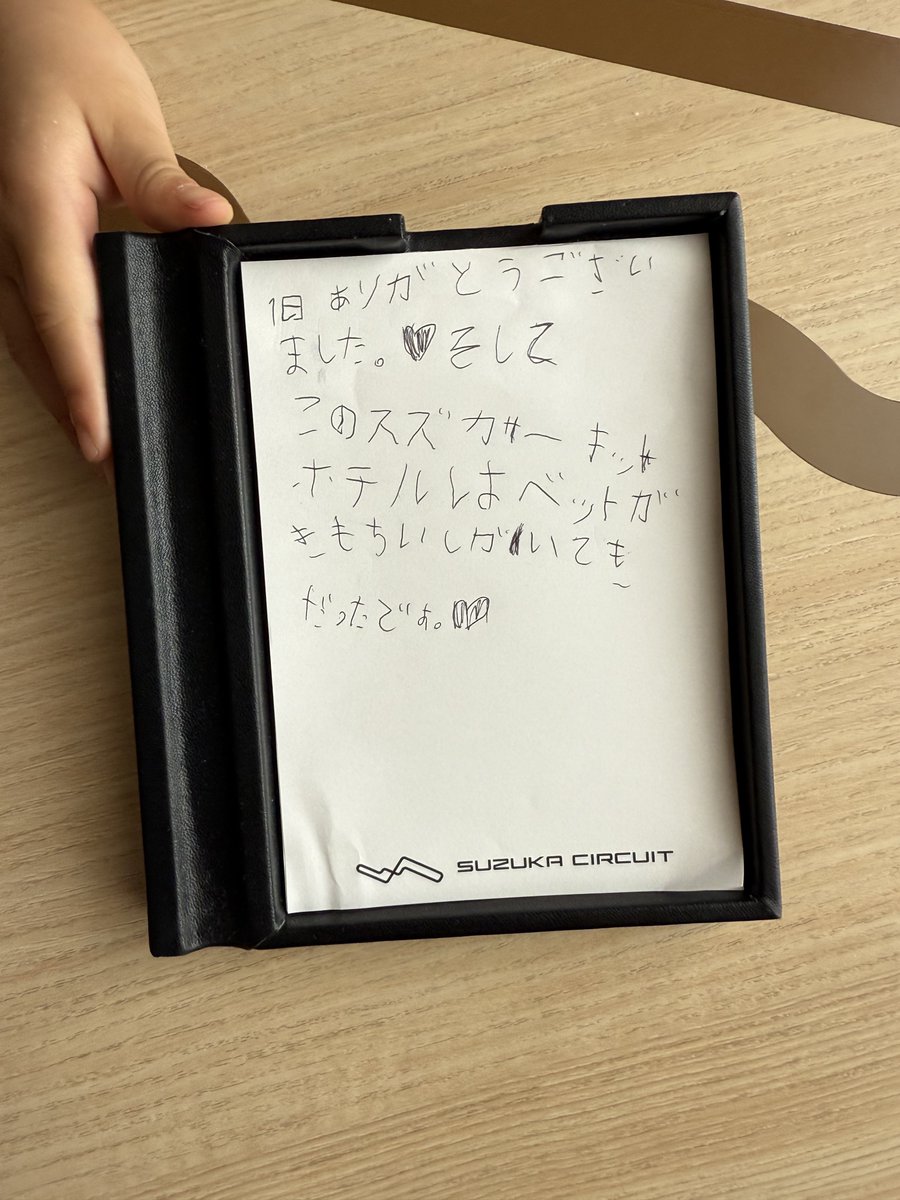 1日ありがとうござい
ました。♥そして
このスズカサーキット
ホテルはベットが
きもちいしがいても
だったです。♥
SUZUKA CIRCUIT